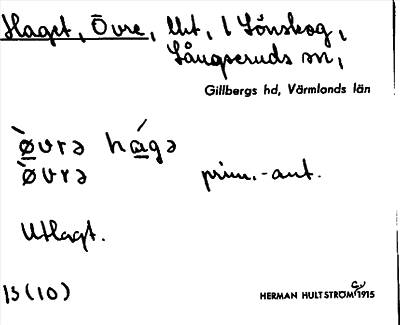 Haget, Övre, lht, i Lönskog,
Långseruds sn,
Gillbergs hd, Värmlands län
ø̀vrə hágə
ø̀vrə prim.-ant.
Utlagt.
13 (10)
HERMAN HULTSTRÖM 1915